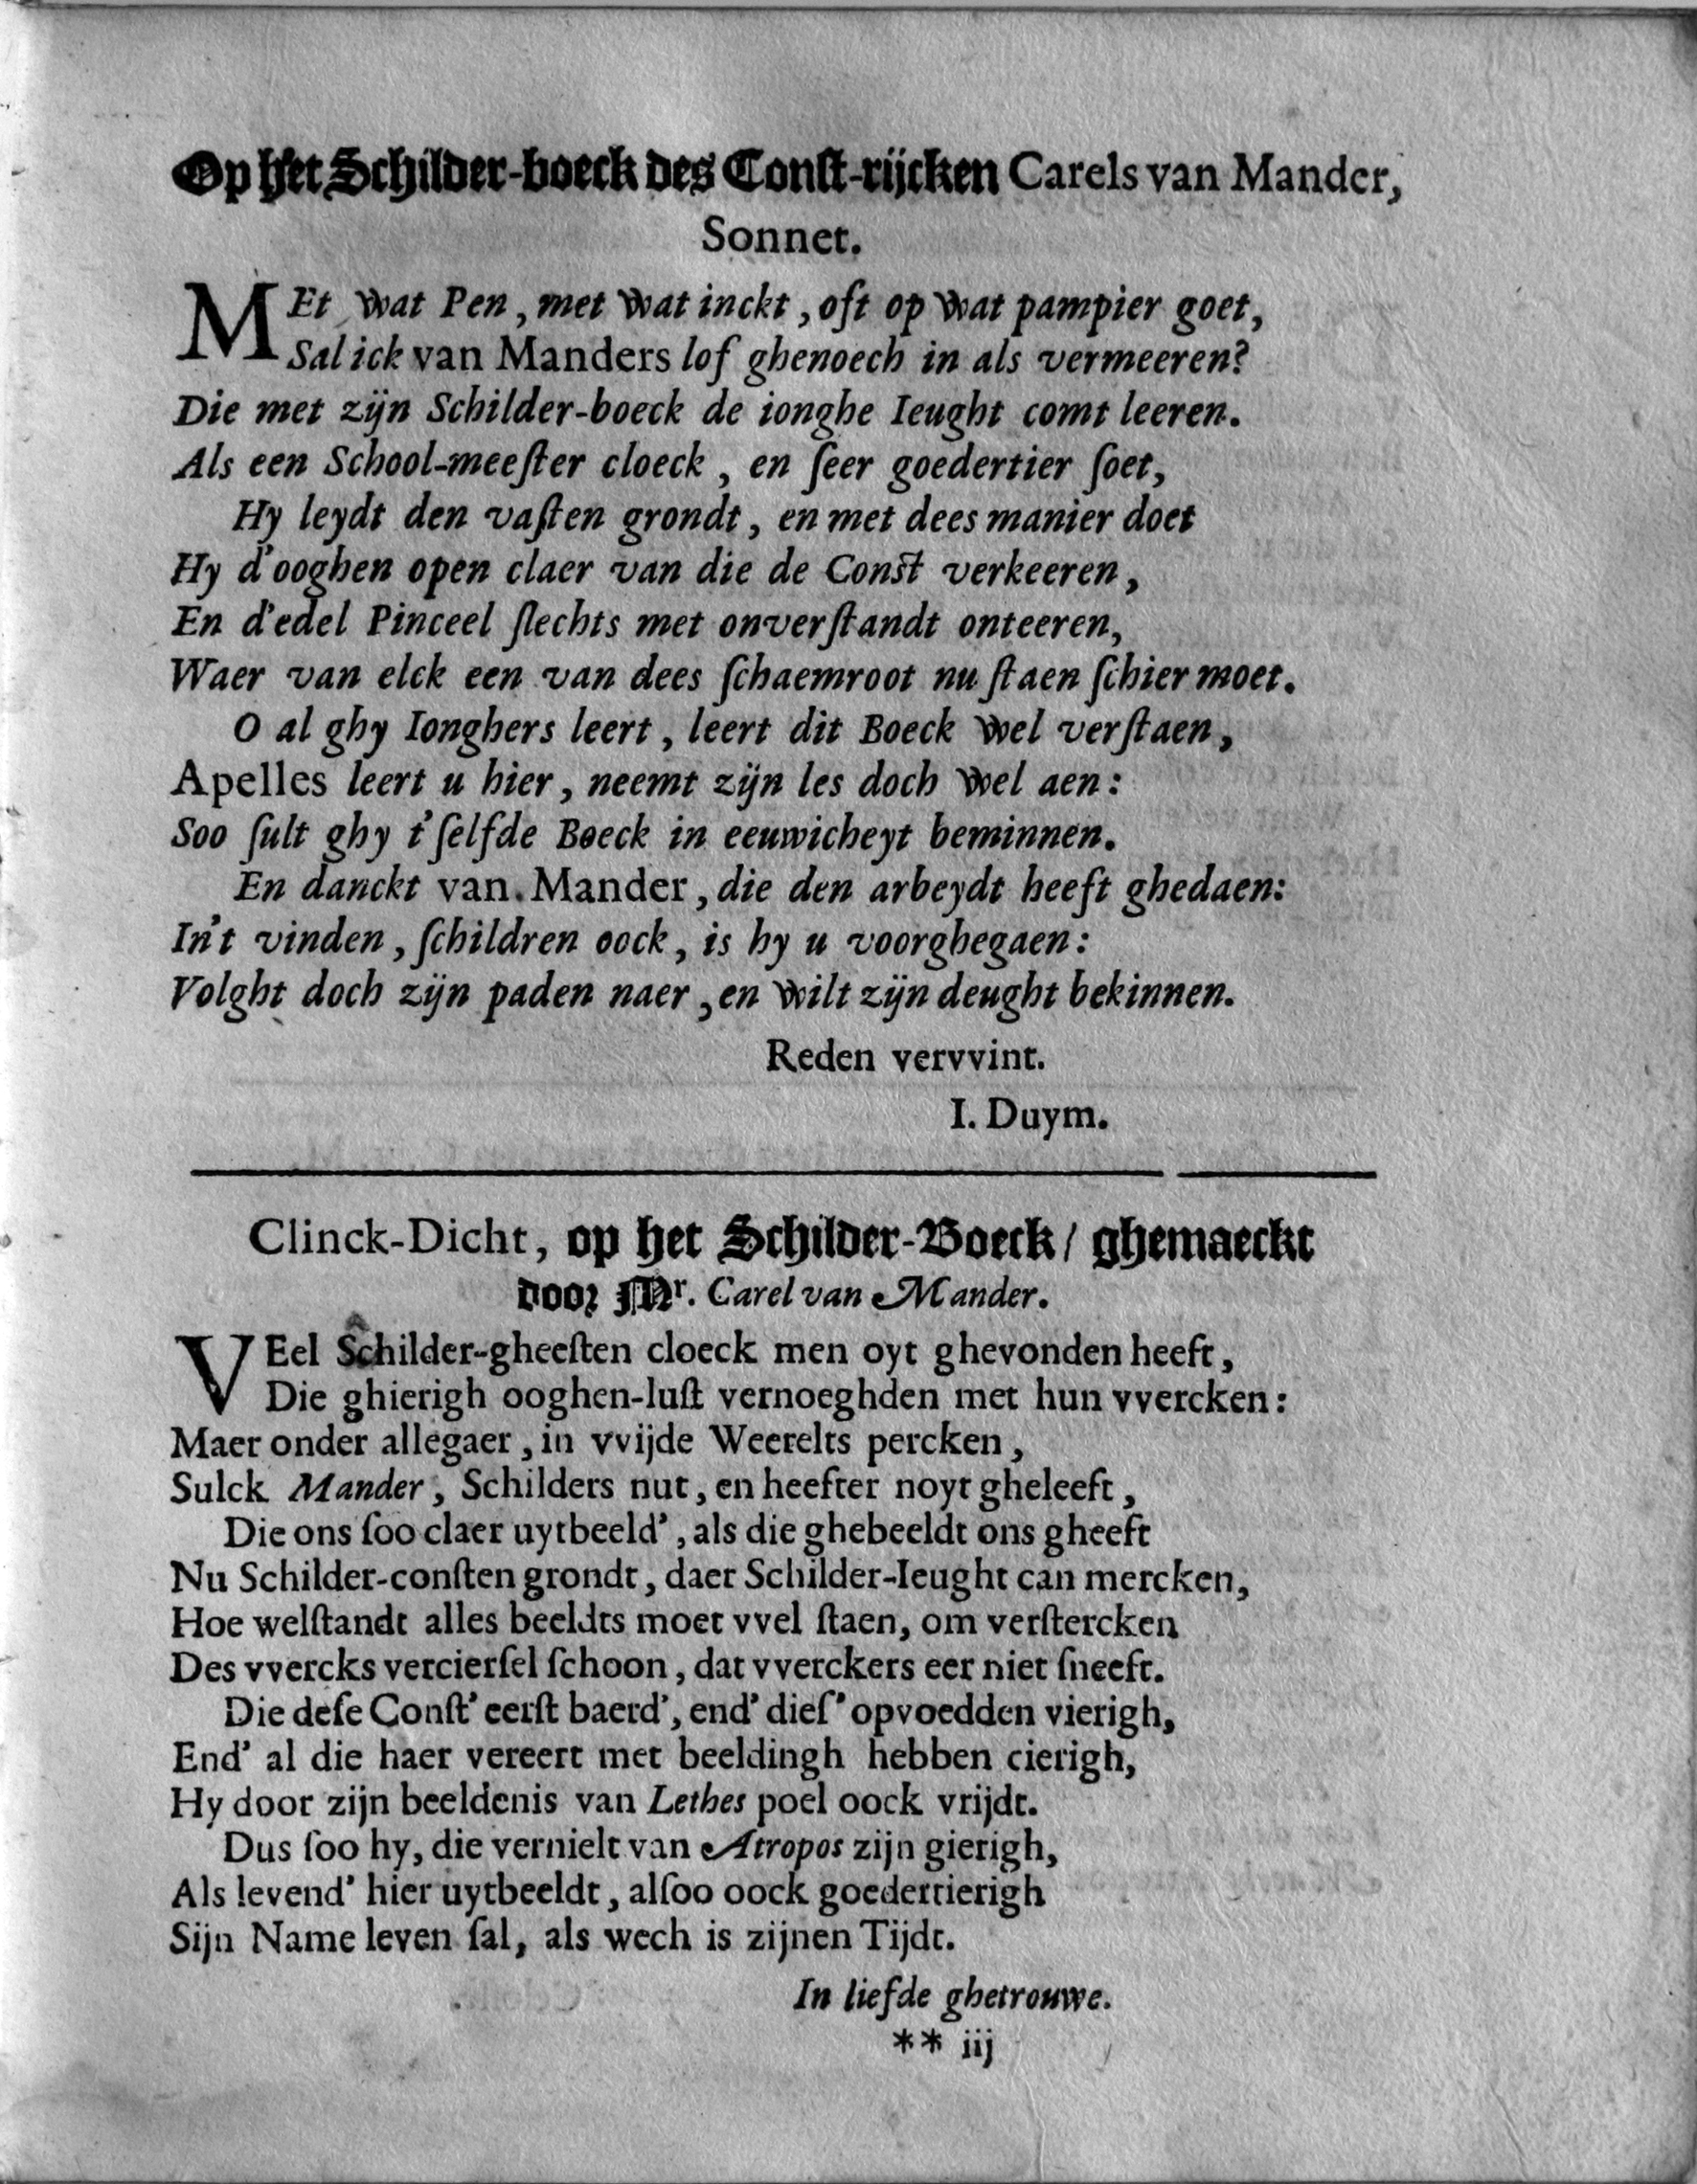 Op het Schilder-boeck des Conſt-rijcken Carels van Mander,
Sonnet.
MEt wat Pen, met wat inckt, oft op wat pampier goet,
Sal ick van Manders lof ghenoech in als vermeeren?
Die met zijn Schilder-boeck de ionghe Ieught comt leeren.
Als een School-meeſter cloeck, en ſeer goedertier ſoet,
Hy leydt den vaſten grondt, en met dees manier doet
Hy d'ooghen open claer van die de Conſt verkeeren,
En d'edel Pinceel ſlechts met onverſtandt onteeren,
Waer van elck een van dees ſchaemroot nu ſtaen ſchier moet.
O al ghy Ionghers leert, leert dit Boeck wel verſtaen,
Apelles leert u hier, neemt zijn les doch wel aen:
Soo ſult ghy t'ſelfde Boeck in eeuwicheyt beminnen.
En danckt van Mander, die den arbeydt heeft ghedaen:
In't vinden, ſchildren oock, is hy u voorghegaen:
Volght doch zijn paden naer, en wilt zijn deught bekinnen.
Reden vervvint.
I. Duym.
Clinck-Dicht, op het Schilder-Boeck/ ghemaeckt
door Mr. Carel van Mander.
VEel Schilder-gheeſten cloeck men oyt ghevonden heeft,
Die ghierigh ooghen-luſt vernoeghden met hun vvercken:
Maer onder allegaer, in vvijde Weerelts percken,
Sulck Mander, Schilders nut, en heefter noyt gheleeft,
Die ons ſoo claer uytbeeld', als die ghebeeldt ons gheeft
Nu Schilder-conſten grondt, daer Schilder-Ieught can mercken,
Hoe welſtandt alles beeldts moet vvel ſtaen, om verſtercken
Des vvercks vercierſel ſchoon, dat vverckers eer niet ſneeft.
Die deſe Conſt' eerſt baerd', end' dieſ' opvoedden vierigh,
End' al die haer vereert met beeldingh hebben cierigh,
Hy door zijn beeldenis van Lethes poel oock vrijdt.
Dus ſoo hy, die vernielt van Atropos zijn gierigh,
Als levend' hier uytbeeldt, alſoo oock goedertierigh
Sijn Name leven ſal, als wech is zijnen Tijdt.
In liefde ghetrouwe.
** iij